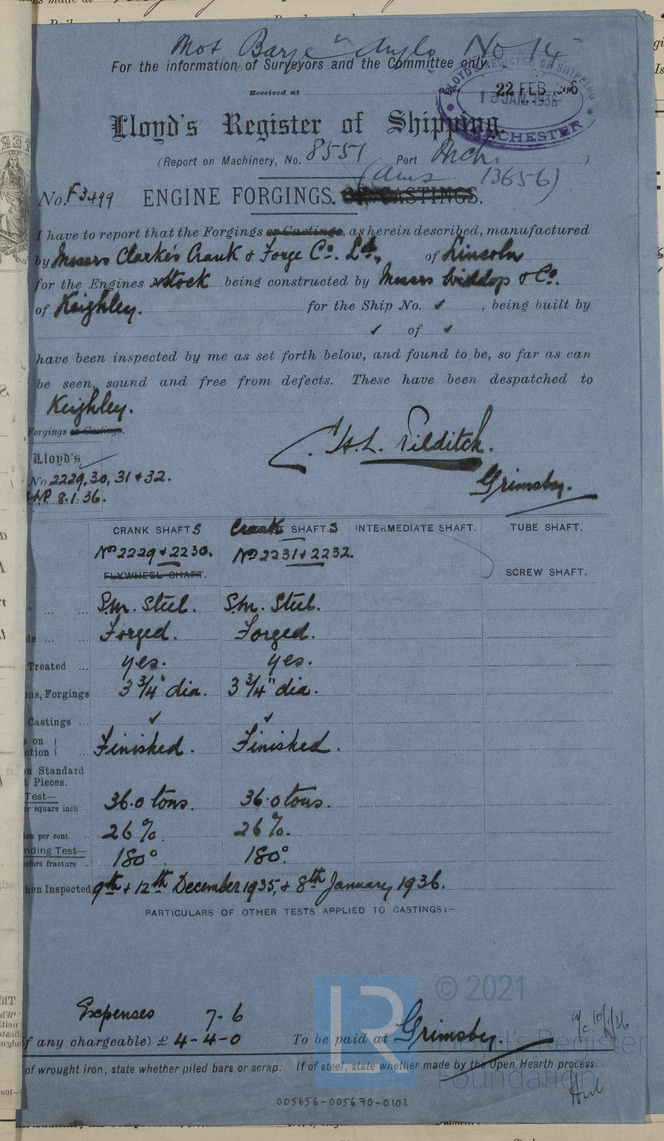 Mot Barge "Anglo No 14"
For the information of Surveyors and the Committee only.
Received at
LLOYD'S REGISTER OF SHIPPING
22 FEB 1936
13 JAN. 1936
MANCHESTER
Lloyd's Register of Shipping.
(Report on Machinery, No. 8551 Port Mch. )
13656)
No. F3499 ENGINE FORGINGS. OR CASTINGS.
I have to report that the Forgings or Castings, as herein described, manufactured
by Messrs Clarke's Crank & Forge Co. Ltd., of Lincoln
for the Engines Stock being constructed by Messrs Widdop & Co.
of Keighley. for the Ship No. ✓ , being built by
✓ of ✓
have been inspected by me as set forth below, and found to be, so far as can
be seen, sound and free from defects. These have been despatched to
Keighley.
Forgings or Castings.
C. H. L. Pilditch.
Lloyd's ✓
No 2229, 30, 31 & 32.
Grimsby.
8.1.36.
CRANK SHAFTS Crank SHAFTS INTERMEDIATE SHAFT. TUBE SHAFT.
Nos 2229 & 2230. Nos 2231 & 2232.
FLYWHEEL SHAFT. SCREW SHAFT.
... ... S.M. Steel. S.M. Steel.
de ... ... Forged. Forged.
Treated ... yes. yes.
ns, Forgings 3 3/4" dia. 3 3/4" dia.
Castings ... ✓ ✓
s on
ction Finished. Finished.
n Standard
t Pieces.
Test—
r square inch 36.0 tons. 36.0 tons.
on per cent 26%. 26%.
nding Test—
before fracture ... 180°. 180°.
hen Inspected 9th & 12th December 1935, & 8th January 1936.
PARTICULARS OF OTHER TESTS APPLIED TO CASTINGS:—
© 2021
Expenses 7-6
f any chargeable) £ 4-4-0 To be paid at Grimsby.
10/1/36
LR Lloyd's Register
Foundation
of wrought iron, state whether piled bars or scrap. If of steel, state whether made by the Open Hearth process.
005656-005670-0102